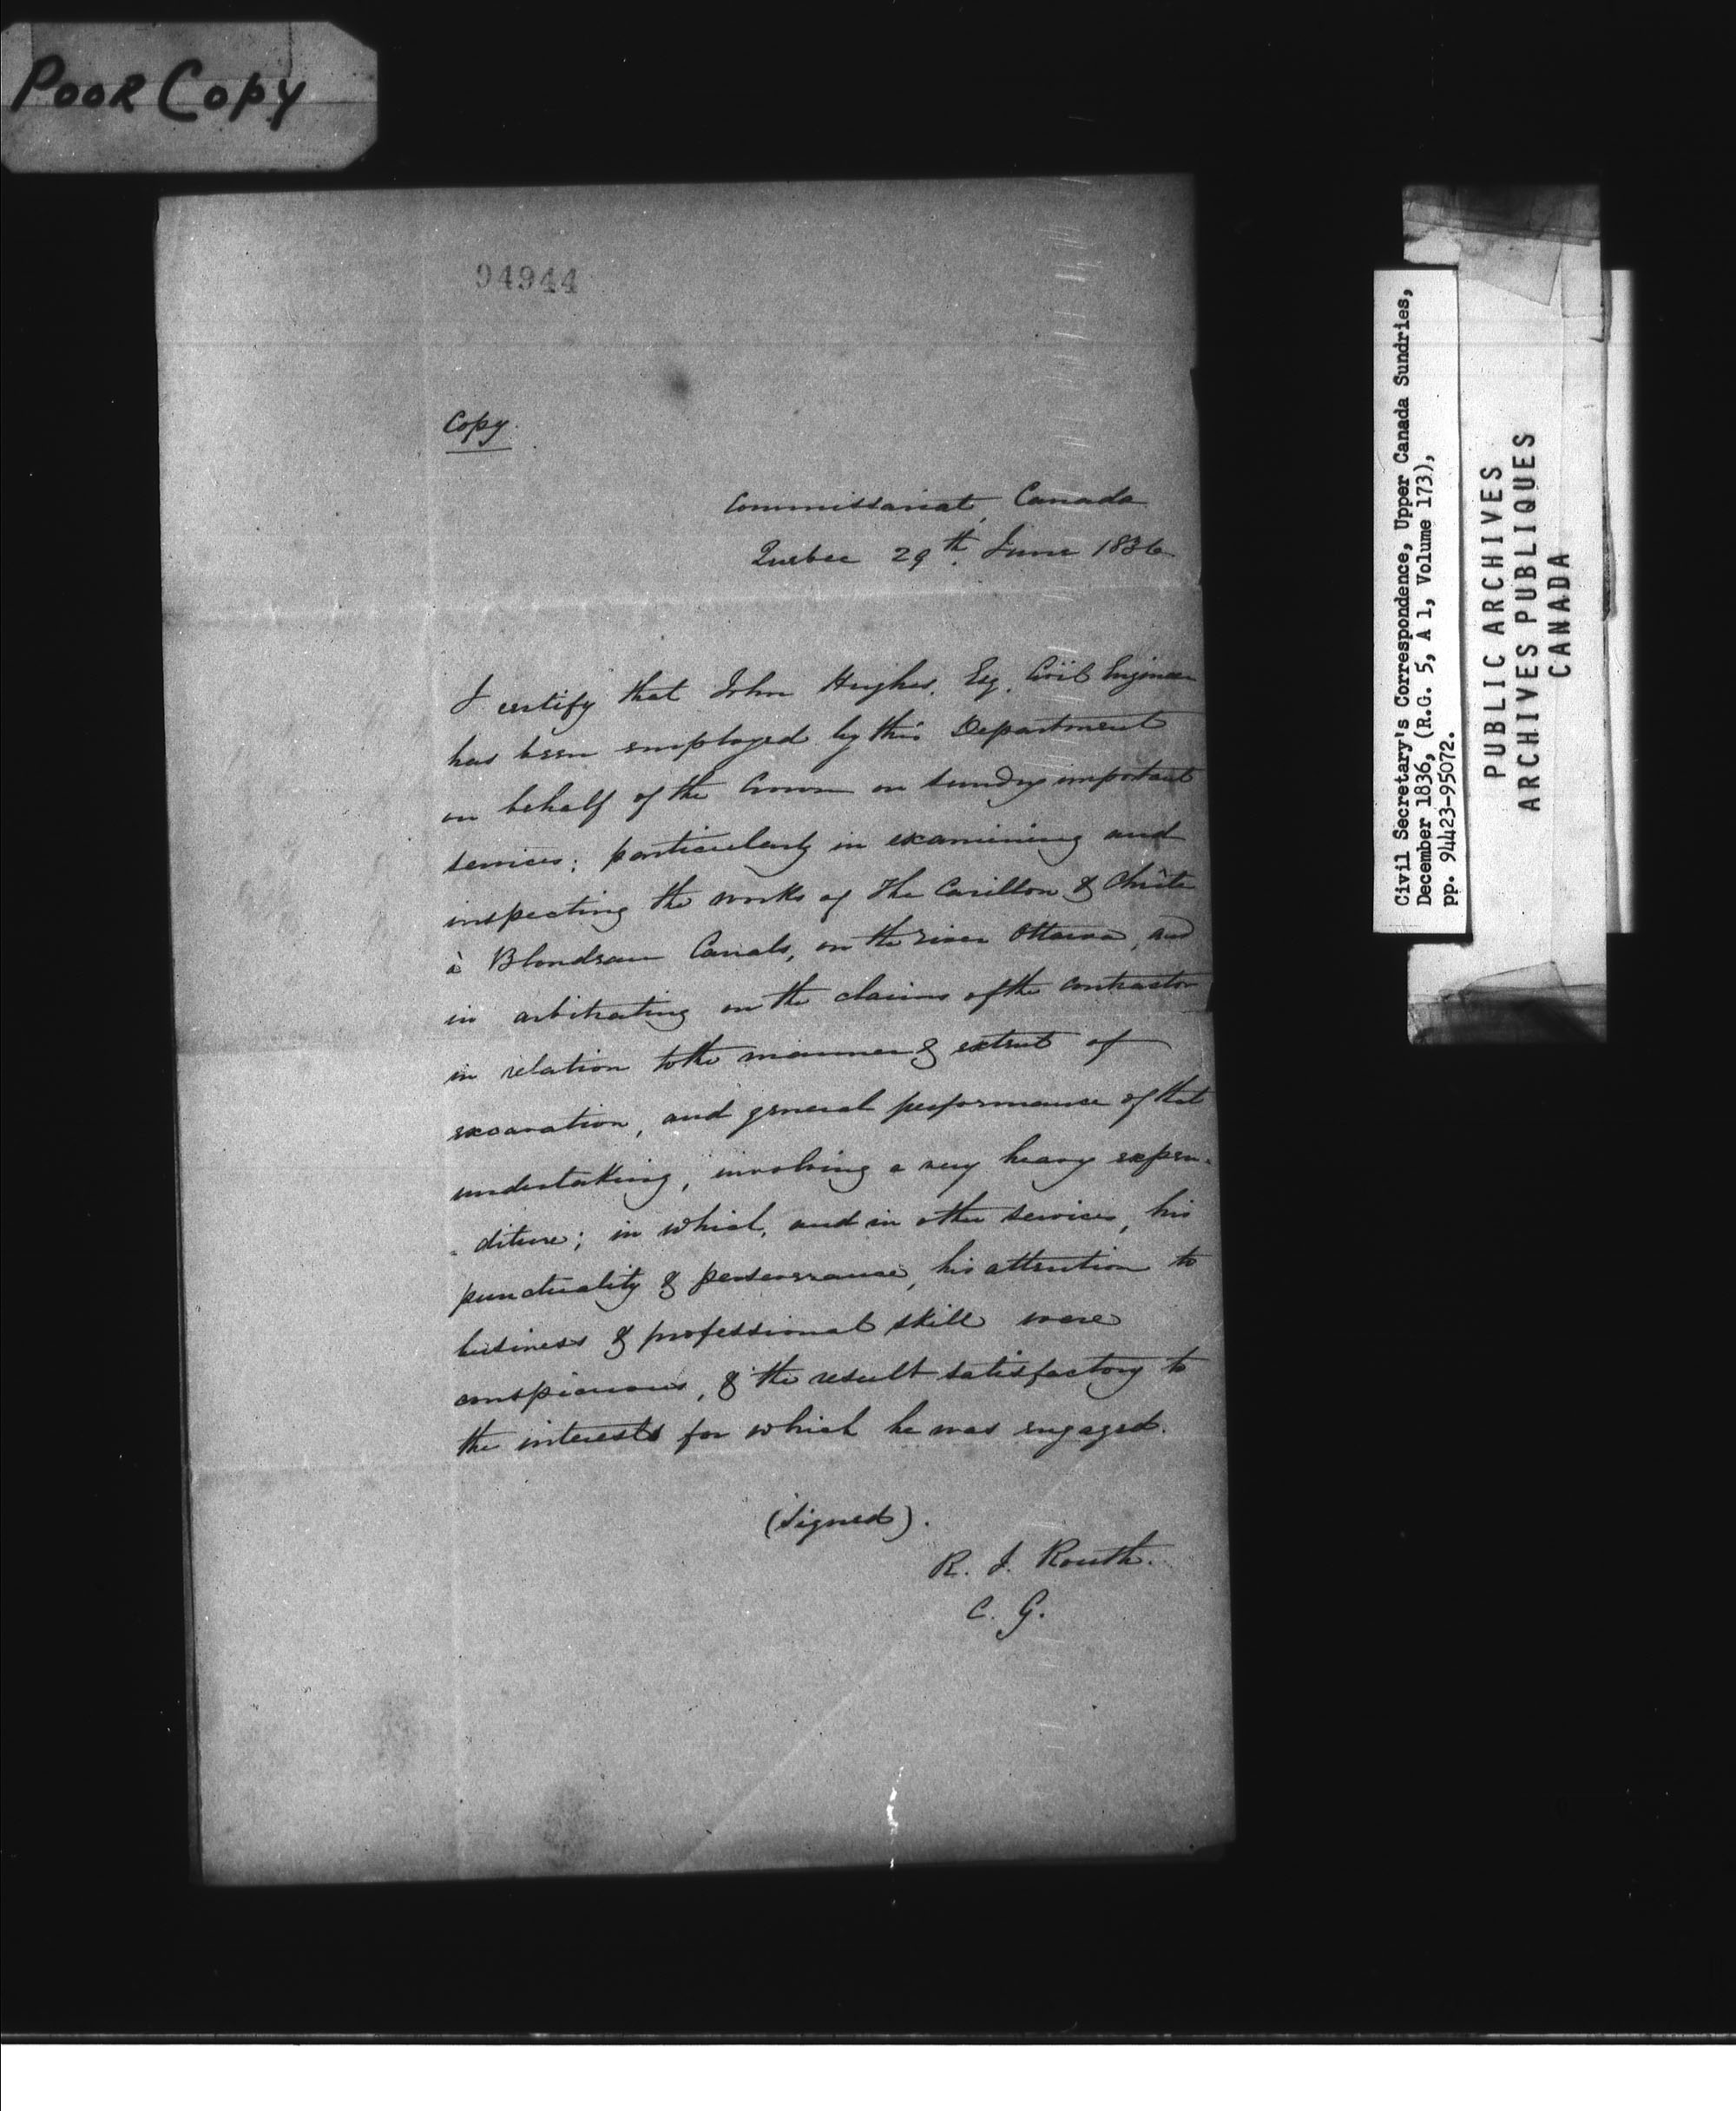 Poor Copy
94944
Copy.
Commissariat, Canada
Quebec 29th. June 1836
I certify that John Hughes, Esq. Civil Engineer
has been employed by this Department
on behalf of the Crown on sundry important
services; particularly in examining and
inspecting the works of the Carillon & Chûte
à Blondeau Canals, on the river Ottawa, and
in arbitrating on the claims of the contractor
in relation to the manner & extent of
excavation, and general performance of that
undertaking, involving a very heavy expen-
-diture; in which, and in other services, his
punctuality & perseverance, his attention to
business & professional skill were
conspicuous, & the result satisfactory to
the interests for which he was engaged.
(Signed).
R. I. Routh.
C. G.
Civil Secretary's Correspondence, Upper Canada Sundries,
December 1836, (R.G. 5, A 1, Volume 173),
pp. 94423-95072.
PUBLIC ARCHIVES
ARCHIVES PUBLIQUES
CANADA